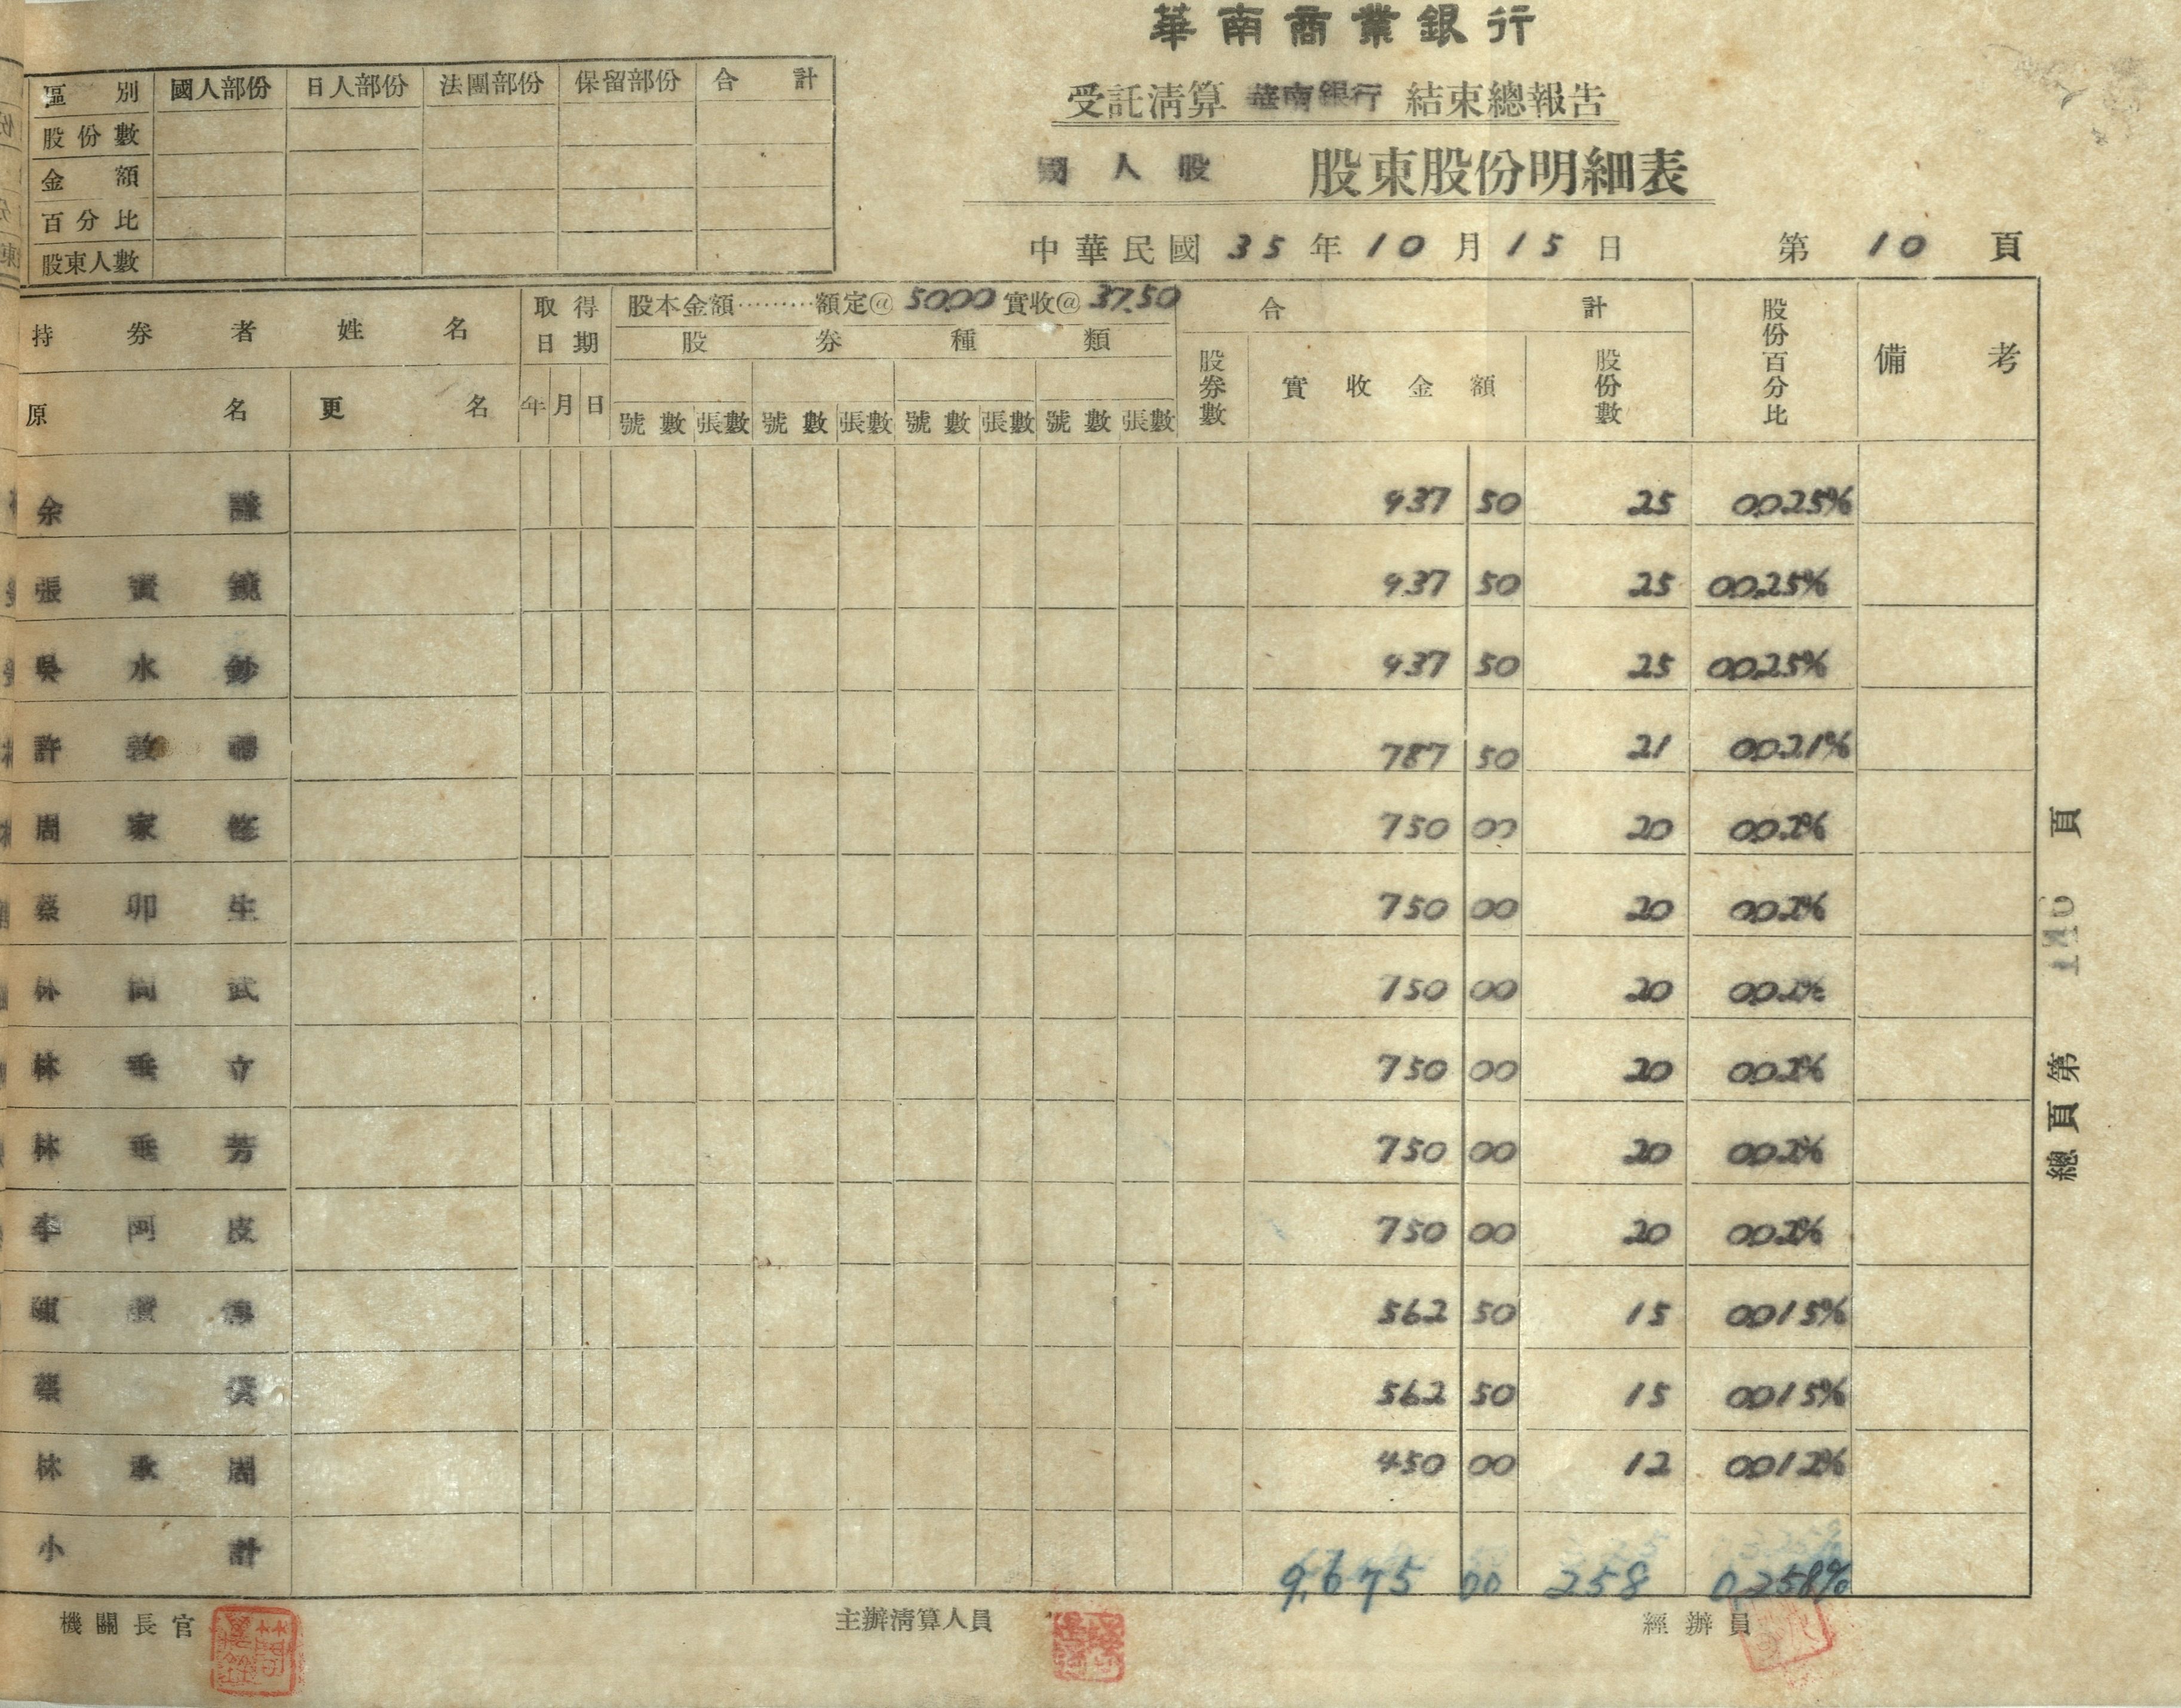 華南商業銀行
受託清算 華南銀行 結束總報告
國人股 股東股份明細表
中華民國 35 年 10 月 15 日 第 10 頁
區別 國人部份 日人部份 法團部份 保留部份 合計
股份數
金額
百分比
股東人數
持券者姓名 取得日期 股本金額………額定@ 50.00 實收@ 37.50 合計 股份百分比 備考
股券種類
原名 更名 年 月 日 號數 張數 號數 張數 號數 張數 號數 張數 股券數 實收金額 股份數
余謙 937 50 25 0.025%
張 937 50 25 0.025%
吳水 937 50 25 0.025%
許敦 787 50 21 0.021%
周家 750 00 20 0.02%
蔡卯生 750 00 20 0.02%
林 武 750 00 20 0.02%
林垂立 750 00 20 0.02%
林垂芳 750 00 20 0.02%
李阿皮 750 00 20 0.02%
陳 562 50 15 0.015%
蔡 562 50 15 0.015%
林 450 00 12 0.012%
小計 9,675 00 258 0.258%
機關長官 主辦清算人員 經辦員
總頁第 頁